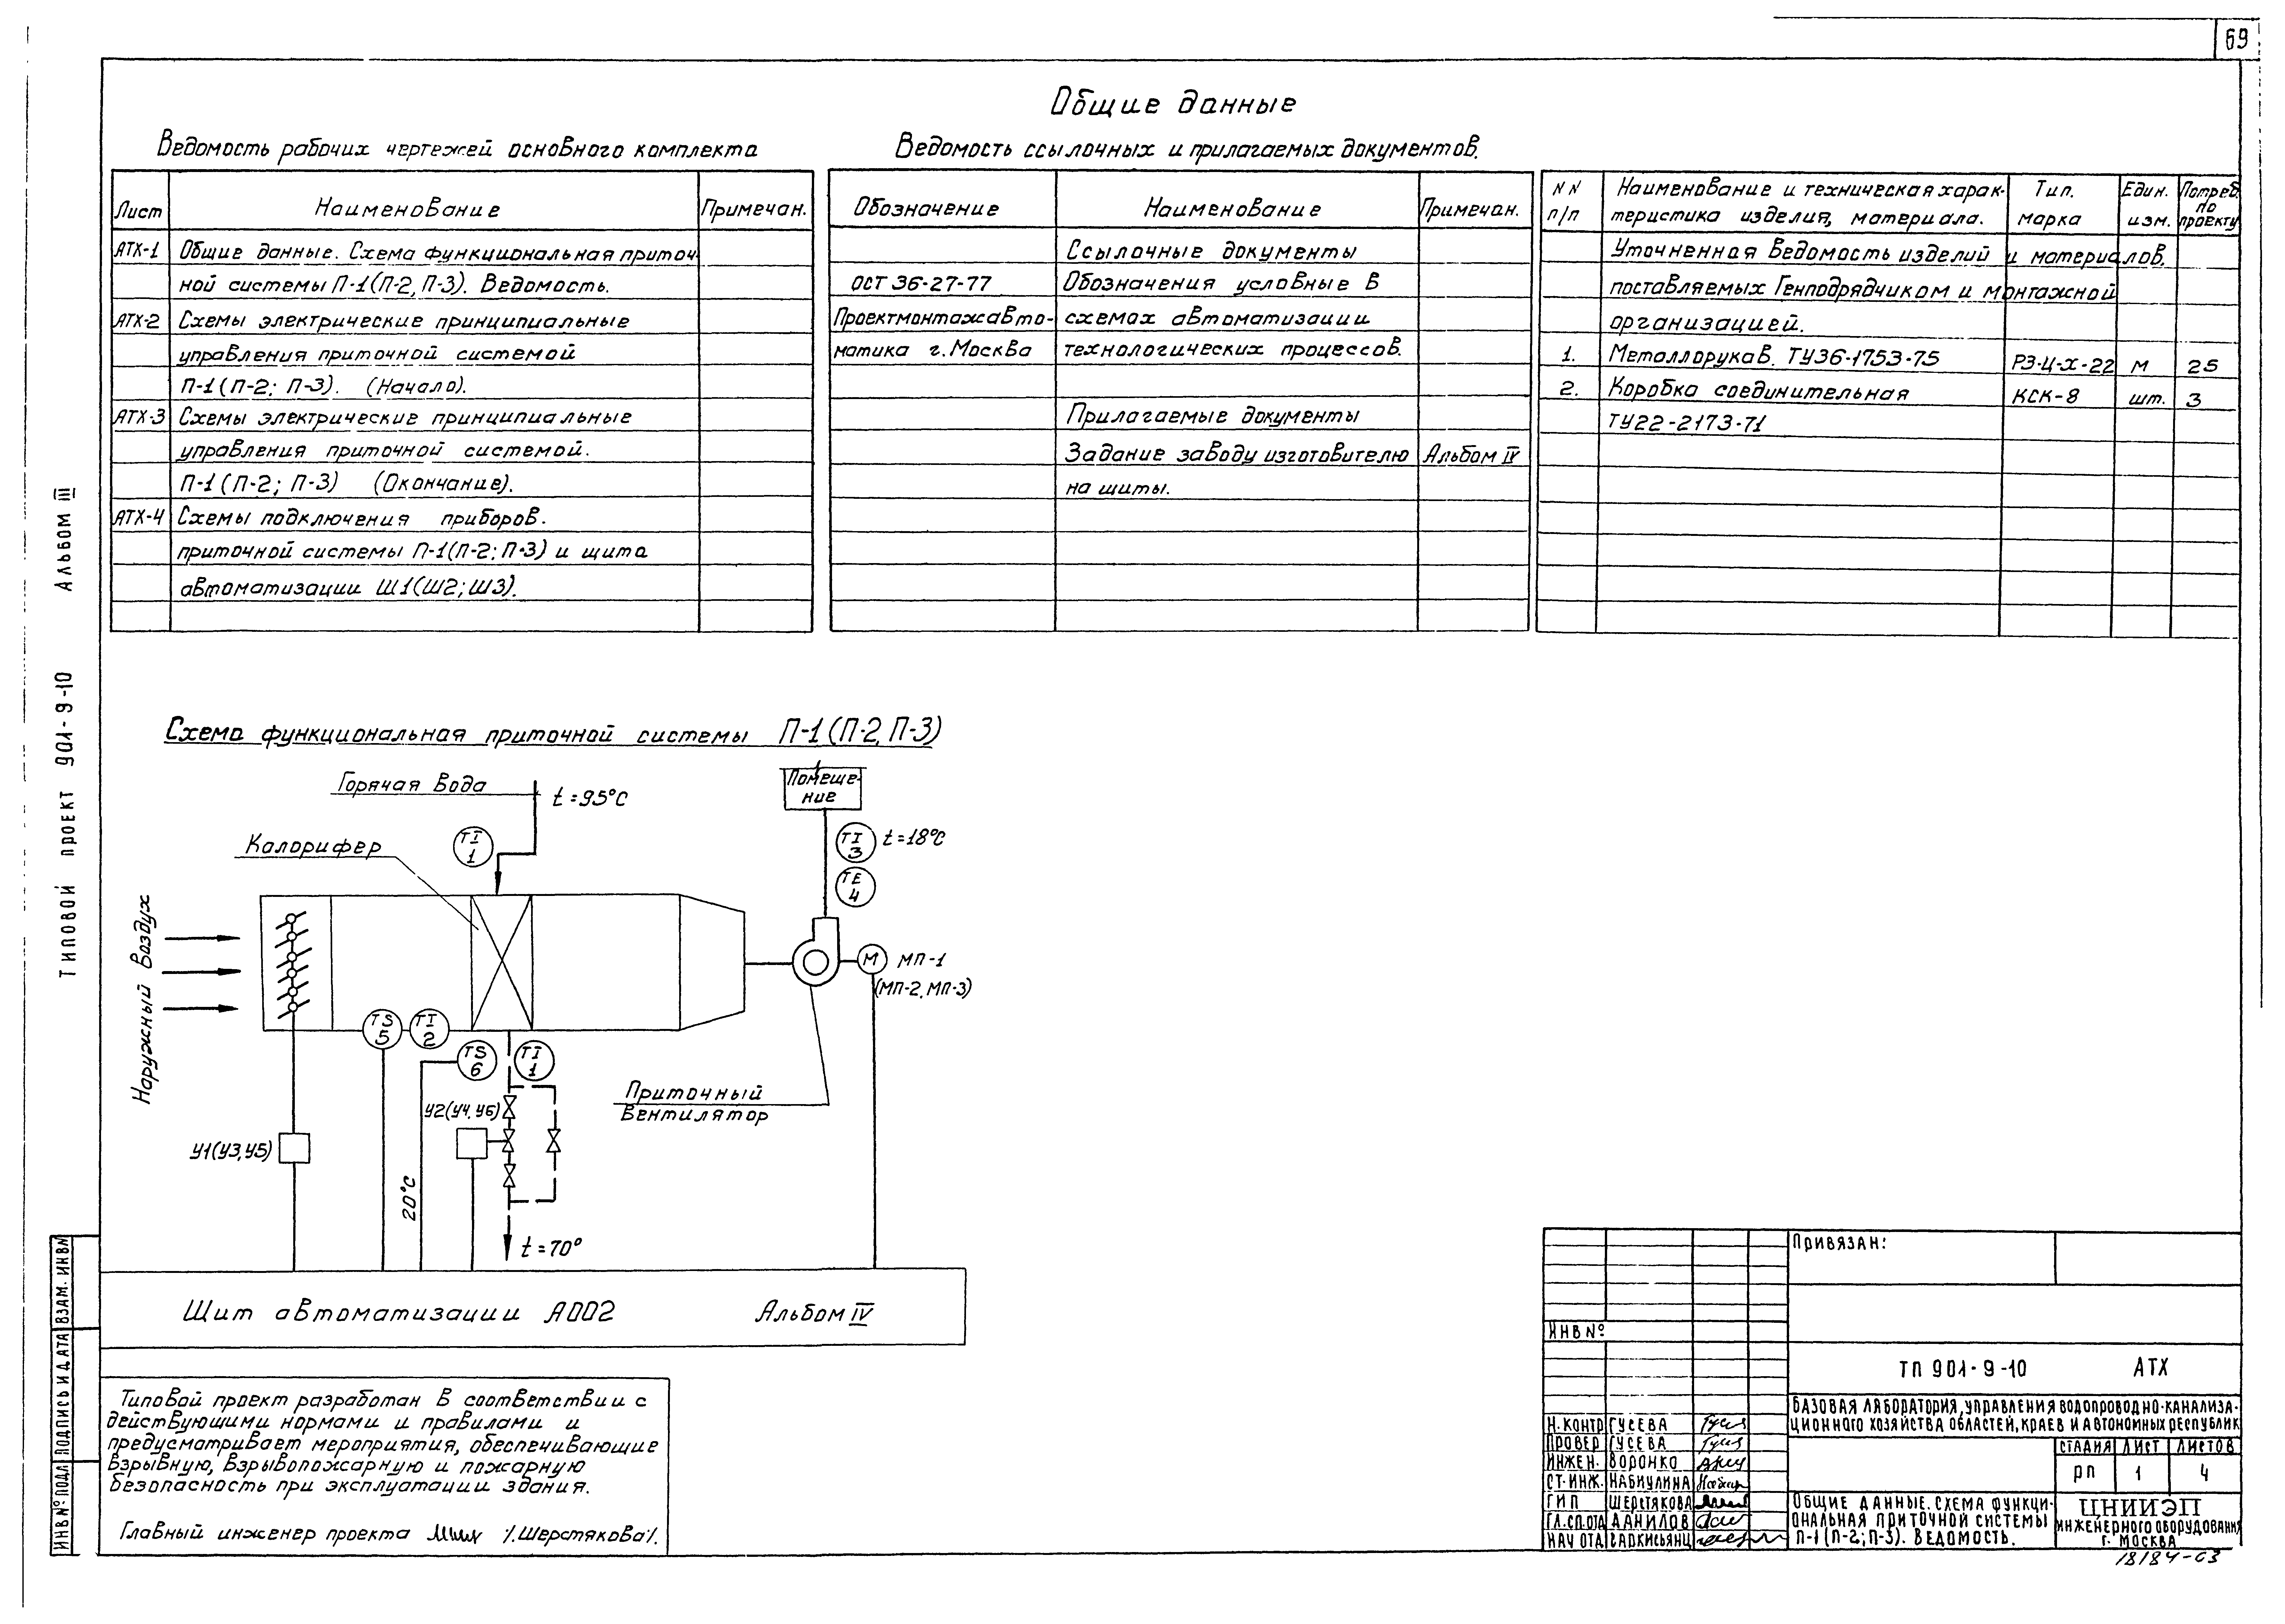 69
Общие данные
Ведомость рабочих чертежей основного комплекта
Лист Наименование Примечан.
АТХ-1 Общие данные. Схема функциональная приточ-
ной системы П-1(П-2, П-3). Ведомость.
АТХ-2 Схемы электрические принципиальные
управления приточной системой
П-1(П-2; П-3). (Начало).
АТХ-3 Схемы электрические принципиальные
управления приточной системой.
П-1(П-2; П-3) (Окончание).
АТХ-4 Схемы подключения приборов.
приточной системы П-1(П-2; П-3) и щита
автоматизации Щ1(Щ2; Щ3).
Ведомость ссылочных и прилагаемых документов.
Обозначение Наименование Примечан.
Ссылочные документы
ОСТ 36-27-77 Обозначения условные в
Проектмонтажавто- схемах автоматизации
матика г. Москва технологических процессов.
Прилагаемые документы
Задание заводу изготовителю Альбом IV
на щиты.
NN Наименование и техническая харак- Тип. Един. Потреб.
п/п теристика изделия, материала. марка изм. по проекту
Уточненная ведомость изделий и материалов.
поставляемых Генподрядчиком и монтажной
организацией.
1. Металлорукав. ТУ36-1753-75 РЗ-Ц-Х-22 м 25
2. Коробка соединительная КСК-8 шт. 3
ТУ22-2173-71
Альбом III
Типовой проект 901-9-10
Схема функциональная приточной системы П-1(П-2, П-3)
Горячая вода
t=95°C
Помеще-
ние
TI
1
TI
3
t=18°C
Калорифер
TE
4
Наружный воздух
М МП-1
(МП-2, МП-3)
TS
5
TI
2
TS
6
TI
1
Приточный
вентилятор
У2(У4, У6)
У1(У3, У5)
20°C
t=70°
Щит автоматизации А002 Альбом IV
Типовой проект разработан в соответствии с
действующими нормами и правилами и
предусматривает мероприятия, обеспечивающие
взрывную, взрывопожарную и пожарную
безопасность при эксплуатации здания.
Главный инженер проекта /.Шерстякова/.
Взам. инв N
Подпись и дата
Инв № подл
Привязан:
Инв №
ТП 901-9-10 АТХ
Базовая лаборатория, управления водопроводно-канализа-
ционного хозяйства областей, краев и автономных республик
Н.контр Гусева
Провер Гусева
Инжен. Воронко
Ст.инж. Набиулина
ГИП Шерстякова
Гл.сп.отд Данилов
Нач отд Саркисьянц
Стадия Лист Листов
РП 1 4
Общие данные. Схема функци-
ональная приточной системы
П-1(П-2; П-3). Ведомость.
ЦНИИЭП
инженерного оборудования
г. Москва
18184-03